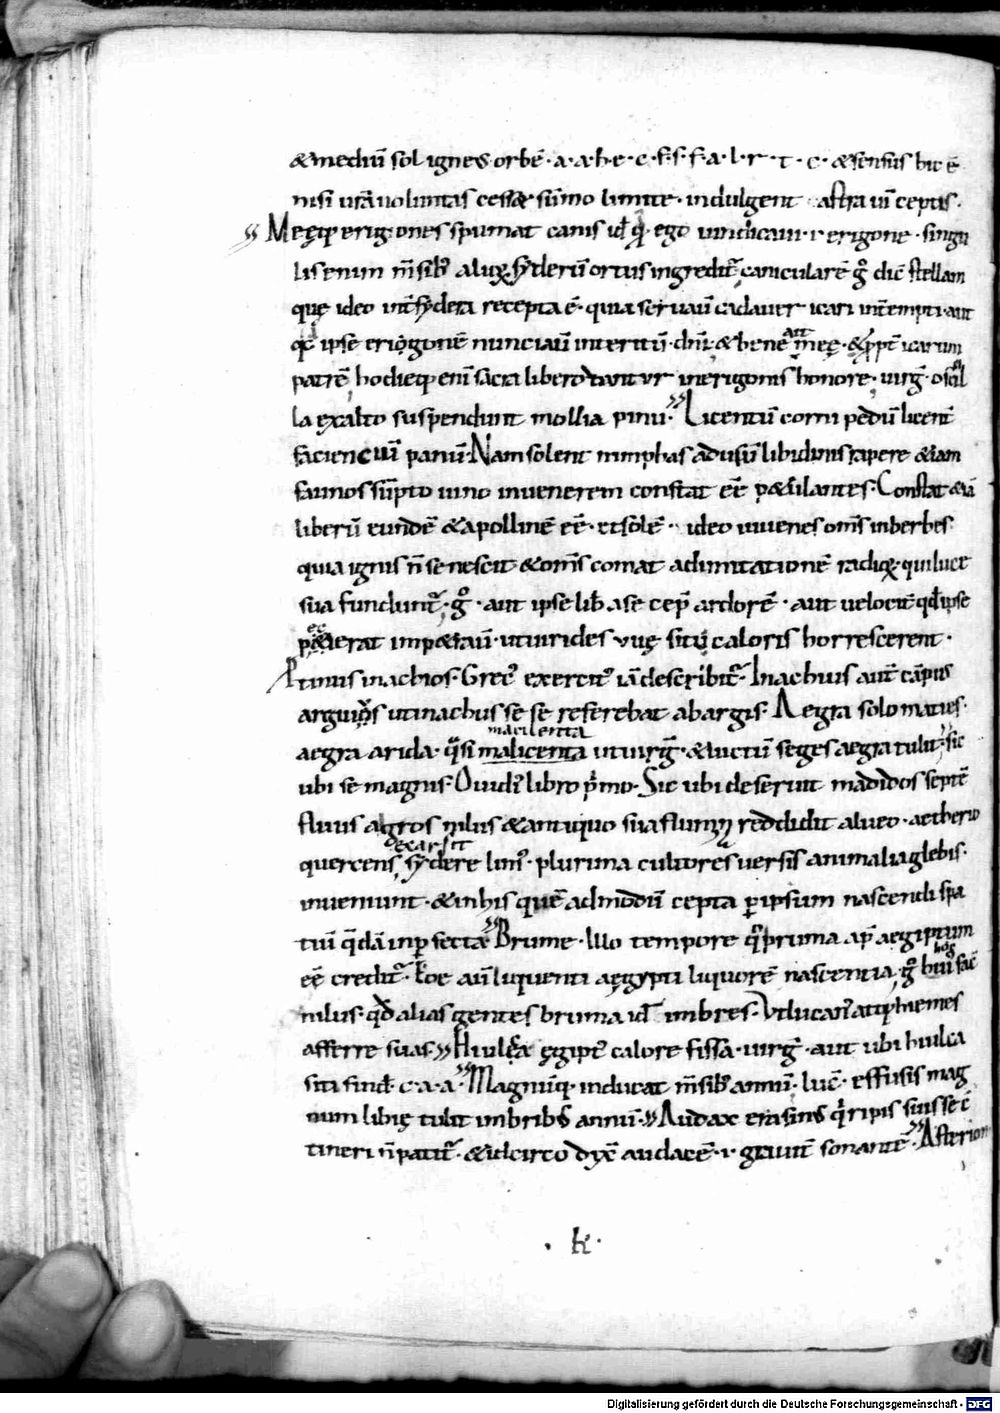 & mediū sol igneus orbē · a · a · h · e · c · f · s · f · a · l · r · t · c · & sensus hic ē
nisi urā uoluntas cessæ sūmo limite · indulgent astra ui ceptis ·
Meęq; erig ones spumat canis ut q ego uindicaui · i · erigone · singu
lis enim m̄sib; aliq; syderū ortus ingredit᷑ canicularē g̊ dic̄ stellam
quę ideo int̄ sydera recepta ē · quia seruauit cadauer icari int̄empti · aut
qd ipse erigonē nunciauit interitū · dn̄r & bene ait meę · & ꝓpt̄ icarum
patrē hodieq; eni sacra libero dantur in erigonis honore · uirḡ · oscil
la ex alto suspendunt mollia pinu · Licentū cornipedū licent̄
faciencuī panū · Nam solent nimphas ad usū libidinis rapere & iam
faunos sūpto uino in uenerem constat eē p&ulantes · Constat & iā
liberū eundē & apollinē eē · et solē · ideo iuuenes om̄s inberbes
quia ignis n̄ senescit & om̄s comat ad imitationē radioꝝ · qui luce
sua fundunt᷑ · g̊ · aut ipse lib a se cep̄ ardorē · aut uelocit̄ qđ ipse
p&ierat imp&rauit · ut uirides uuę situ caloris horrescerent ·
Primus inachios · Grec᷒ exercit᷒ iā describit᷑ · Inachius aut̄ cāpus
arguiōs ut inachus se se referebat ab argis · Aegra solo macies ·
macilenta
aegra arida · q̄si malicenta ut uirḡ · & uictū seges aegra tulit · sic
ubi se magnus · Ouidi᷒ libro p̄mo · Sic ubi deseruit madidos septē
fluus agros nilus & antiquo sua flumina reddidit alueo · aetherio
exarsit
quercens sydere lim᷒ · plurima cultores uersis animalia glebis ·
inueniunt · & in his quē admodū cepta ꝑ ipsum nascendi spa
tiū q̄dā inꝑfecta · Brume · Illo tempore q̊ pruma ap̄ aegiptum
eē credit᷑ · Eoe aūt liquenti aegypti liquorē nascentia · g̊ hui᷒ hos facē
nilus · qđ alias gentes bruma id imbres · Vt lucan᷒ atq; hiemes
afferre suas · Hiulca ęgipt᷒ calore fissa · uirḡ · aut ubi hiulca
siti findit c · a · a · Magnūq; inducat m̄sib; annū · luc̄ · effusis mag
num libię tulit imbribus annū · Audax erasinus q̄ ripis suis se c̄
tineri n̄ patit᷑ · & idcirco dix̄ audacē · i · grauit̄ sonantē · Asterion
· k ·
Digitalisierung gefördert durch die Deutsche Forschungsgemeinschaft · DFG